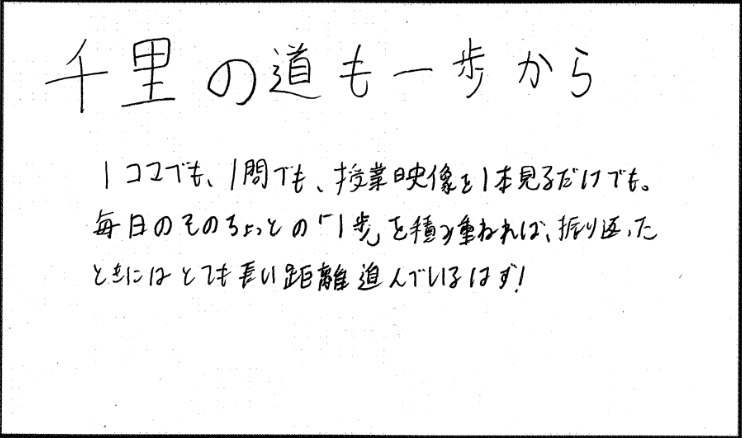 千里の道も一歩から
1コマでも、1問でも、授業映像を1本見るだけでも。
毎日のそのちょっとの「1歩」を積み重ねれば、振り返った
ときにはとても長い距離進んでいるはず!